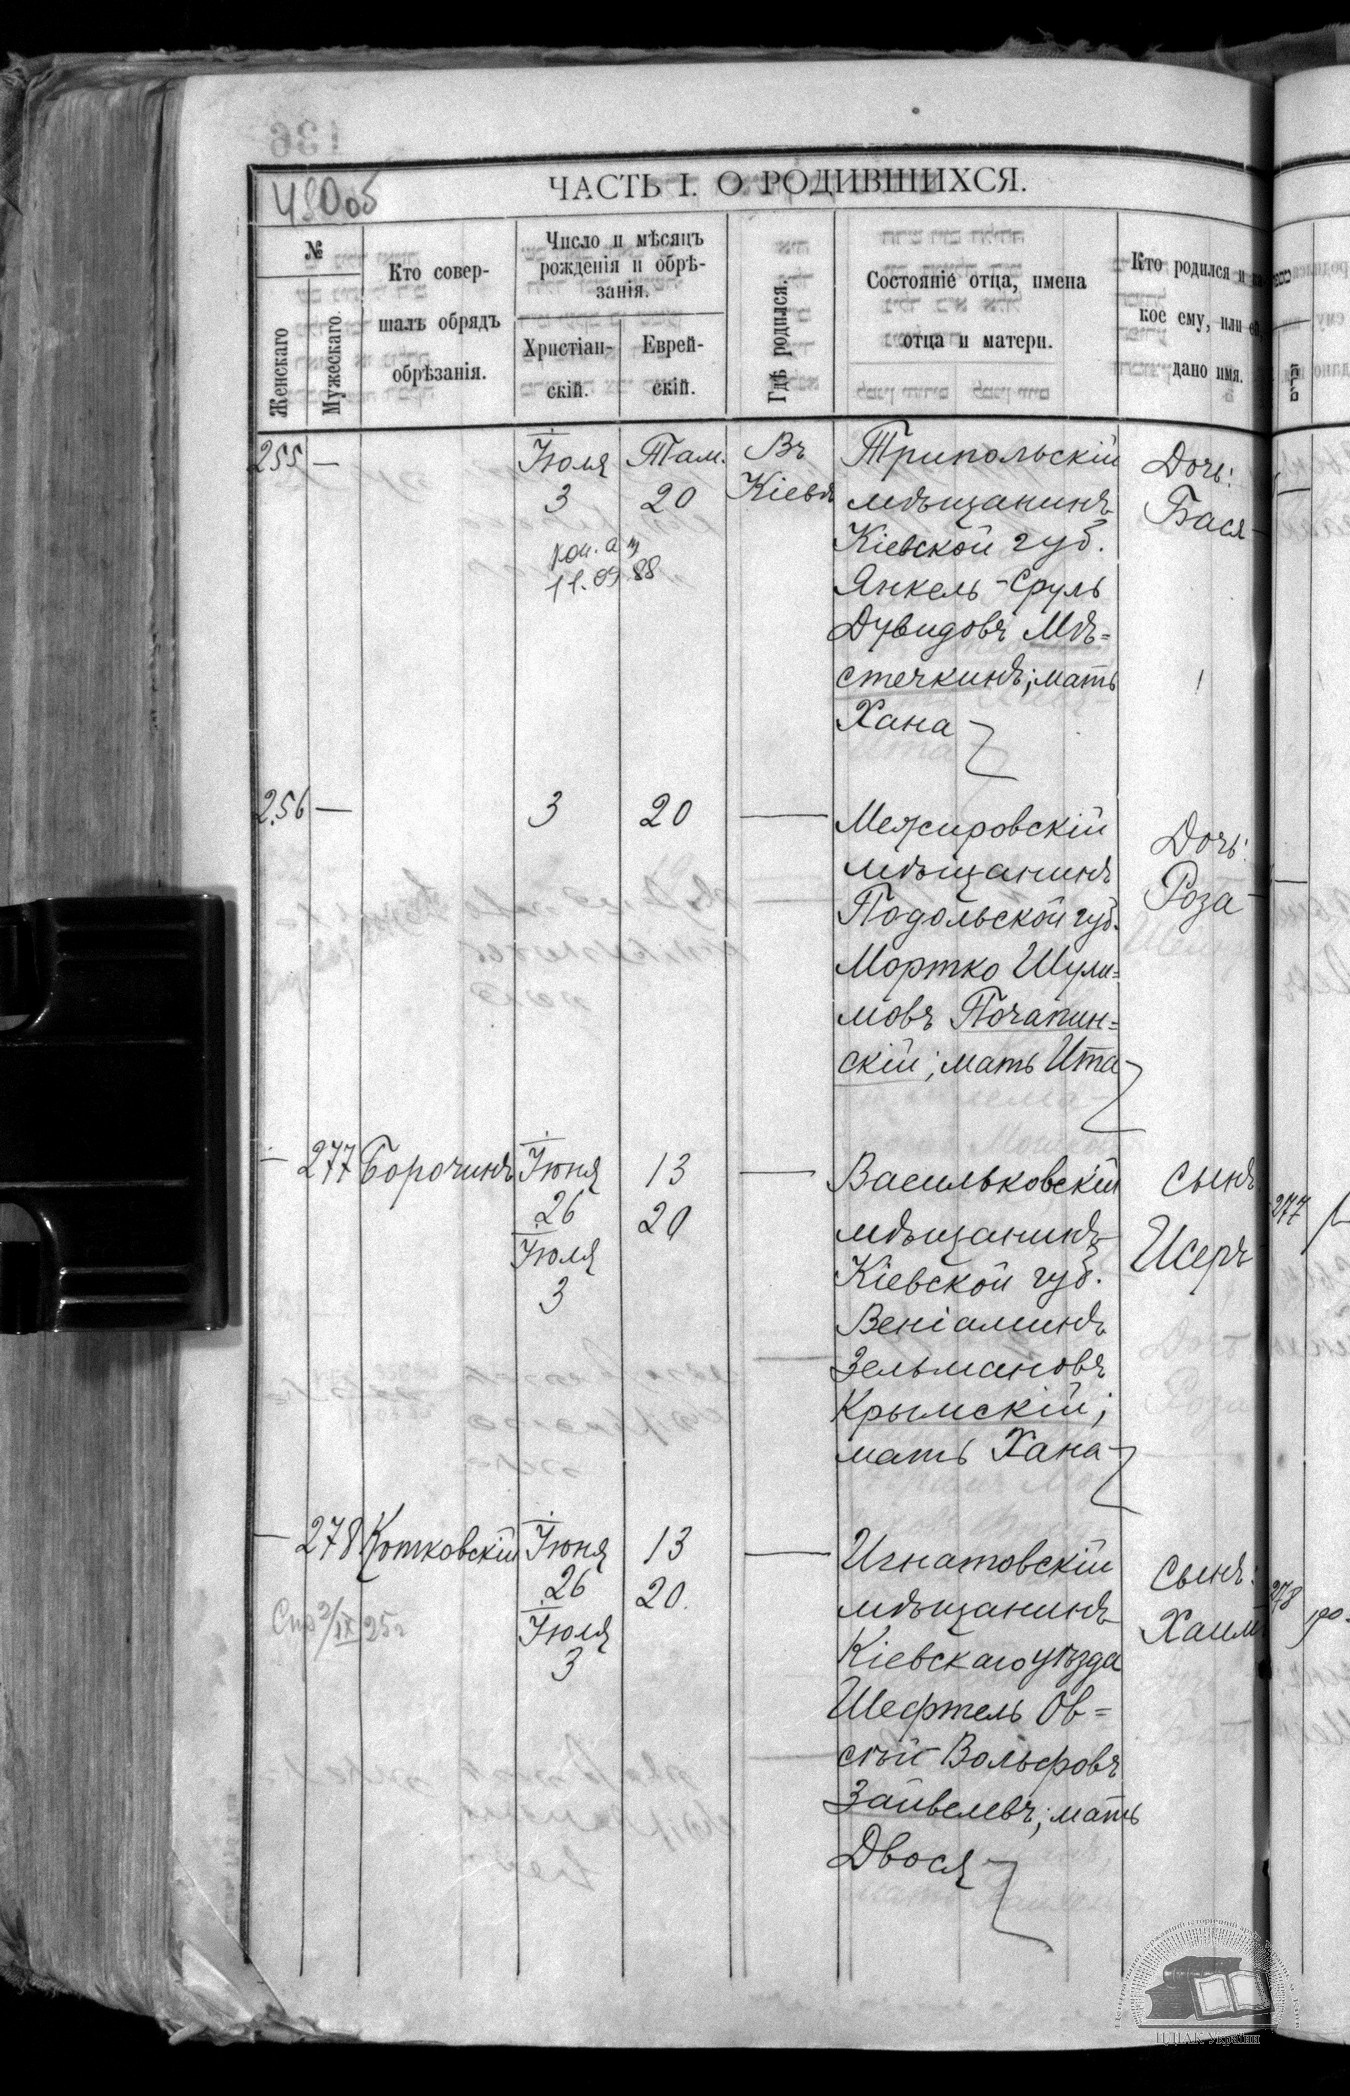 480об
ЧАСТЬ I. О РОДИВШИХСЯ.
№
Женскаго
Мужескаго.
Кто совер-
шалъ обрядъ
обрѣзанія.
Число и мѣсяцъ
рожденія и обрѣ-
занія.
Христіан-
скій.
Еврей-
скій.
Гдѣ родился.
Состояніе отца, имена
отца и матери.
Кто родился и ка-
кое ему, или ей,
дано имя.
255 —
Іюля
3
Там.
20
Въ
Кіевѣ
Трипольскій
мѣщанинъ
Кіевской губ.
Янкель-Сруль
Дувидовъ Мѣ=
стечкинъ; мать
Хана
Дочь:
Бася
11.09.88
256 —
3
20
—
Межировскій
мѣщанинъ
Подольской губ.
Мортко Шули=
мовъ Почапин=
скій; мать Ита
Дочь:
Роза
— 277
Борочинъ
Іюня
26
Іюля
3
13
20
—
Васильковскій
мѣщанинъ
Кіевской губ.
Веніаминъ
Зельмановъ
Крымскій;
мать Хана
Сынъ
Исеръ
277
— 278
Котковскій
Іюня
26
Іюля
3
13
20.
—
Игнатовскій
мѣщанинъ
Кіевскаго уѣзда
Шефтель Ов=
сѣй Вольфовъ
Зайвелевъ; мать
Двося
Сынъ:
Хаим
278
ЦДІАК України